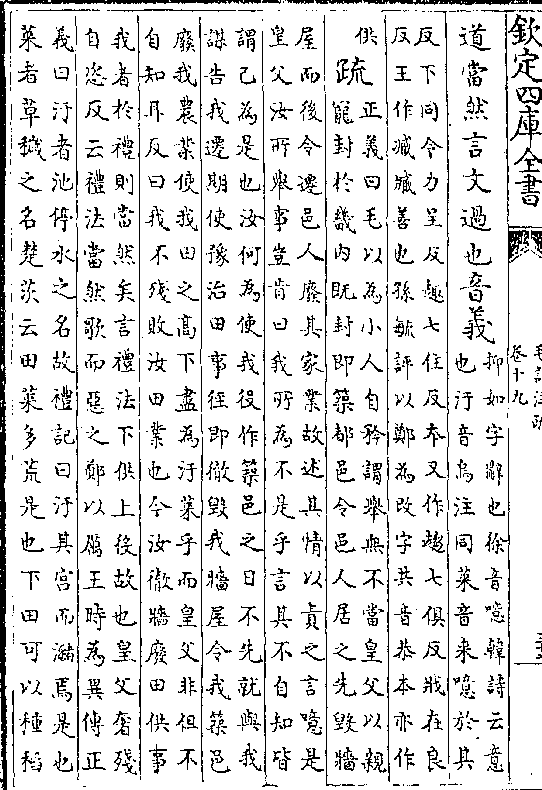 欽定四庫全書
毛詩注疏
卷十九
道當然言文過也音義
抑如字辭也徐音噫韓詩云意
也汙音烏注同萊音來噫於其
反下同令力呈反趣七住反本又作趨七俱反戕在良
反王作臧臧善也孫毓評以鄭為改字共音恭本亦作
供疏正義曰毛以為小人自矜謂舉無不當皇父以親
寵封於畿内既封即築都邑令邑人居之先毀牆
屋而後令遷邑人廢其家業故述其情以責之言噫是
皇父汝所舉事豈肯曰我所為不是乎言其不自知皆
謂己為是也汝何為使我役作築邑之日不先就與我
謀告我遷期使豫治田事徑即徹毀我牆屋令我築邑
廢我農業使我田之高下盡為汙萊乎而皇父非徂不
自知耳反曰我不殘敗汝田業也今汝徹牆廢田供事
我者於禮則當然矣言禮法下供上役故也皇父奢殘
自恣反云禮法當然歌而惡之鄭以厲王時為異傳正
義曰汙者池停水之名故禮記曰汙其宮而瀦焉是也
萊者草穢之名楚茨云田萊多荒是也下田可以種稻